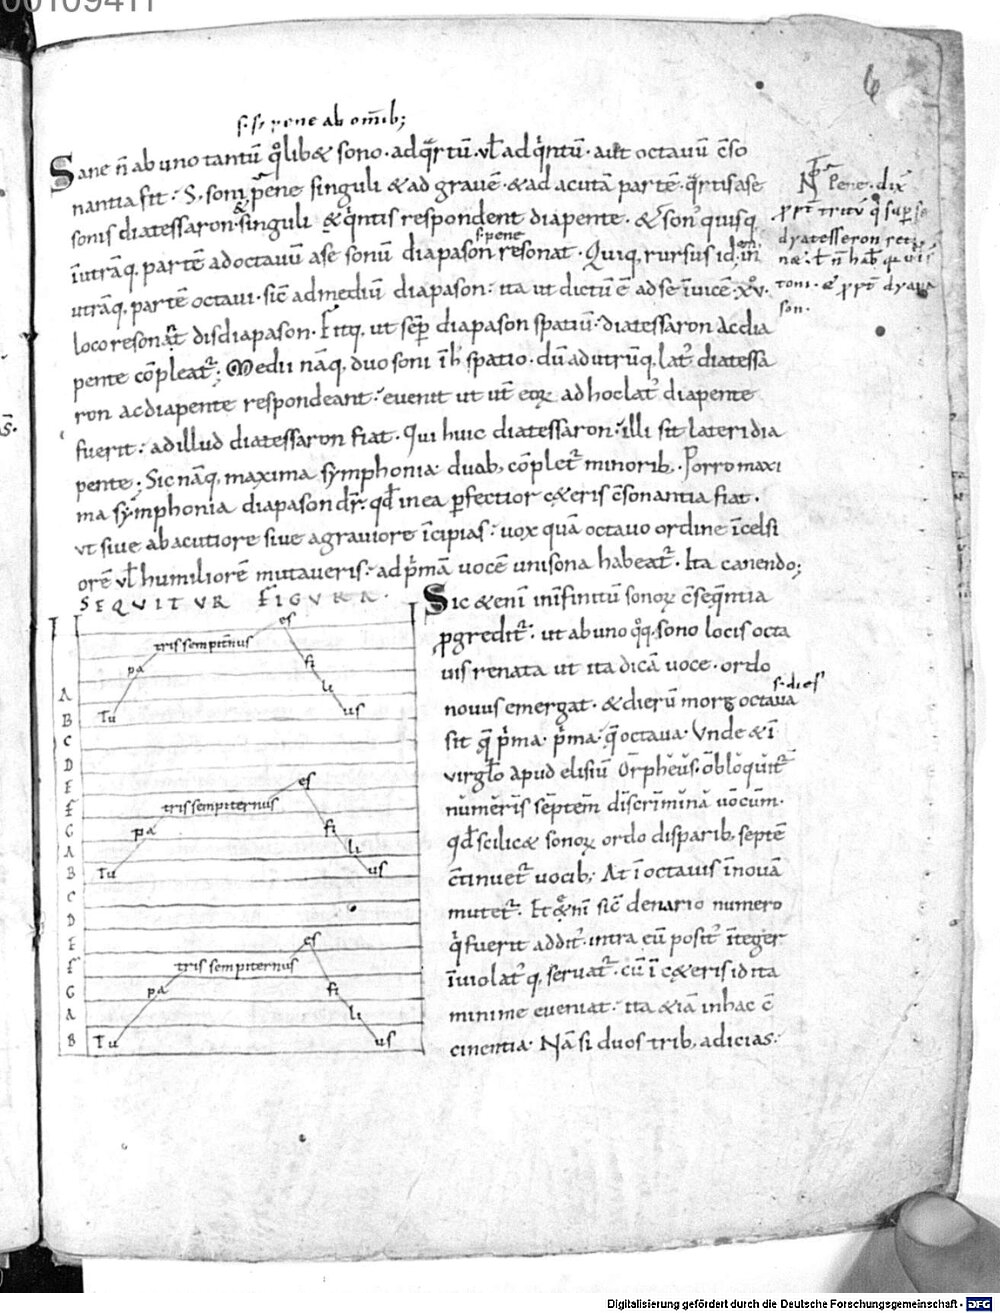 00109411
6
.s. si pene ab om̅ib;
Sane n̅ ab uno tantu̅ q̊libet sono. ad q̅rtu̅. ul̅ ad q̍ntu̅. aut octauu̅ c̅so
nantia fit: S. soni p̅ene singuli & ad graue̅. & ad acuta̅ parte̅. q̅rtis a se
sonis diatessaron. singuli & q̍ntis respondent diapente. & son̅ quisq,
&
i̅ utra̅q, parte̅ ad octauu̅ a se sonu̅ diapason resonat. Quiq, rursus id. in
s. pene
utra̅q, parte̅ octaui. sic̅ ad mediu̅ diapason: ita ut dictu̅ e̅ ad se i̅uice̅ .xv.
loco resona̅t disdiapason. Fitq, ut se̅p diapason spatiu̅. diatessaron ac dia
pente co̅pleat̅; Medii na̅q, duo soni i̅ h̅ spatio. du̅ ad utru̅q, lat̅ diatessa
ron ac diapente respondeant: euenit ut ut̅ eoꝝ ad hoc lat̅ diapente
fuerit: ad illud diatessaron fiat. Qui huic diatessaron: illi sit lateri dia
pente; Sic na̅q, maxima symphonia duab, co̅plet̅ minorib,. Porro maxi
ma symphonia diapason dr̅: qd̅ in ea p̅fectior c&eris c̅sonantia fiat.
ut siue ab acutiore siue a grauiore i̅cipias: uox qua̅ octauo ordine i̅celsi
ore̅ ul̅ humiliore̅ mutaueris: ad p̍ma̅ uoce̅ unisona habeat̅. Ita canendo;
N̅ Pene. dix̅
p̅pt̅ tritu̅ q̍ sup̅ se
dyatesseron reti
toni. & p̅pt̅ dyapa
son.
SEQVITVR FIGVRA.
A
B
C
D
E
F
G
A
B
C
D
E
F
G
A
B
Tu pa tris sempit̅nus es fi li us
Tu pa tris sempiternus es fi li us
Tu pa tris sempiternus es fi li us
Sic & eni̅ in infinitu̅ sonoꝝ c̅seque̅ntia
p̅gredit̅. ut ab uno q̊q, sono locis octa
uis renata ut ita dica̅ uoce. ordo
nouus emergat. & dieru̅ more octaua
s. dies
sit q̅ p̍ma. p̍ma q̅ octaua. Vnde & i̅
uirgl̅o apud elisiu̅ Orpheus. obloquit̅
numeris septem discrimina uocum.
qd̅ scilic& sonoꝝ ordo disparib, septe̅
c̅tinuet̅ uocib; At i̅ octauis i̅noua̅
mutet̅. Et&ni̅ sic̅ denario numero
q̍ fuerit addit̅. intra eu̅ posit̅ i̅teger
i̅uiolat̅q, seruat̅. cu̅ i̅ c&eris id ita
minime eueniat: ita &ia̅ in hac c̅
cinentia. Na̅ si duos trib, adicias.
Digitalisierung gefördert durch die Deutsche Forschungsgemeinschaft - DFG